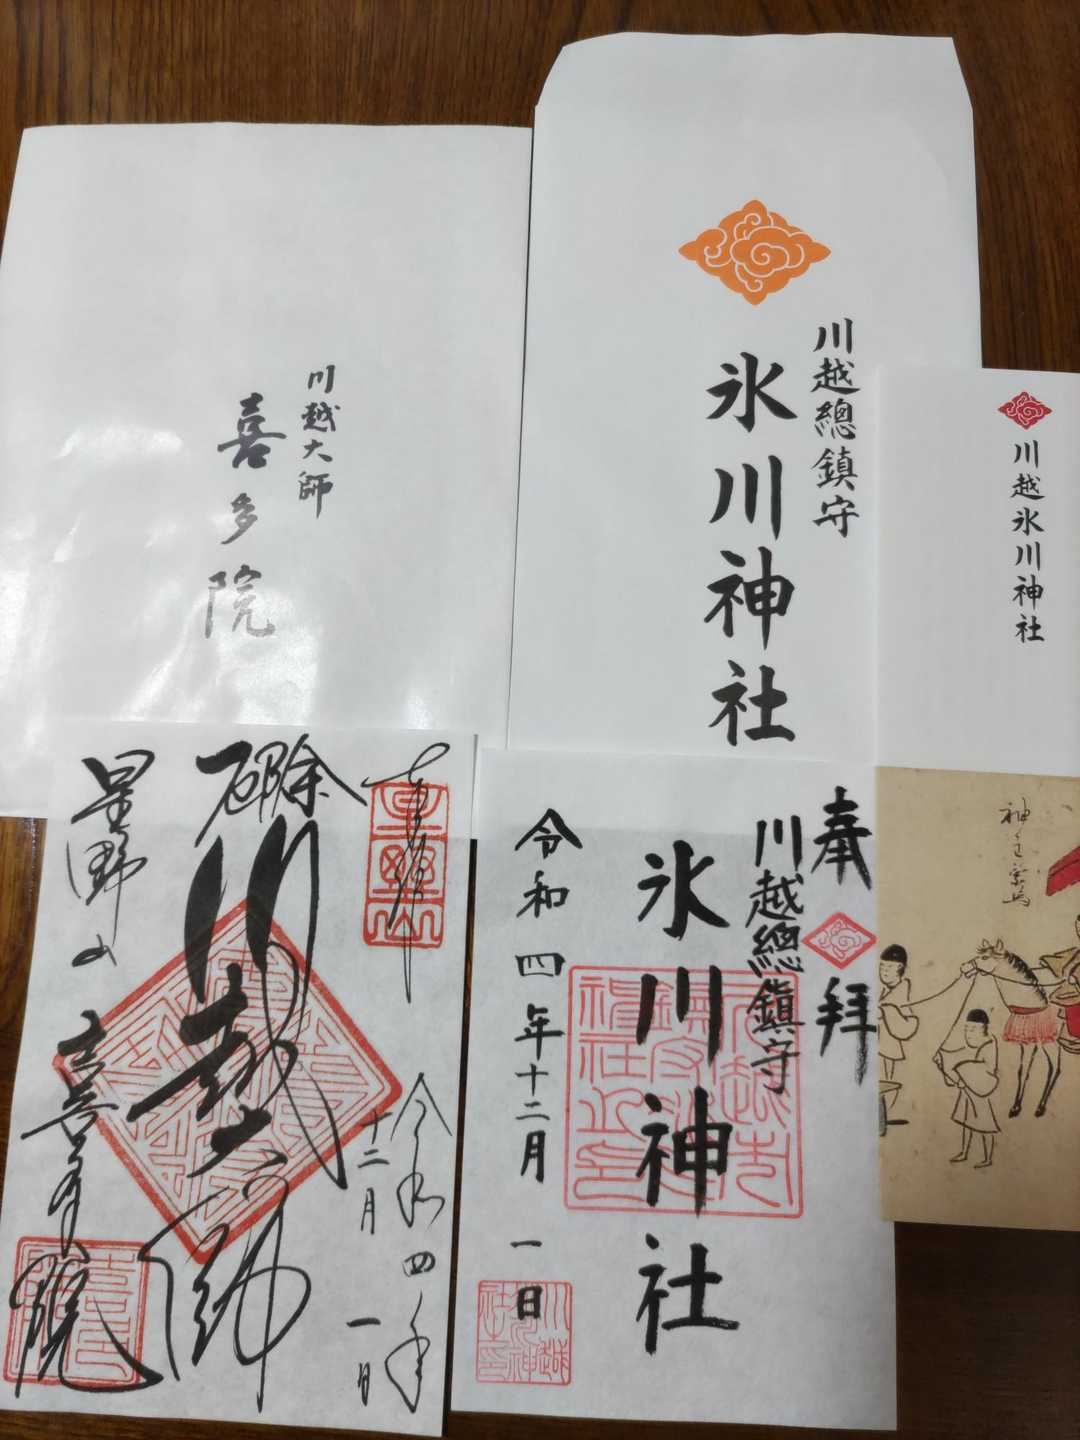 川越大師
喜多院
川越總鎮守
氷川神社
川越氷川神社
神主乗馬
厄除
川越大師
令和四年
十二月一日
星野山
喜多院
奉拝
川越總鎮守
氷川神社
令和四年十二月一日